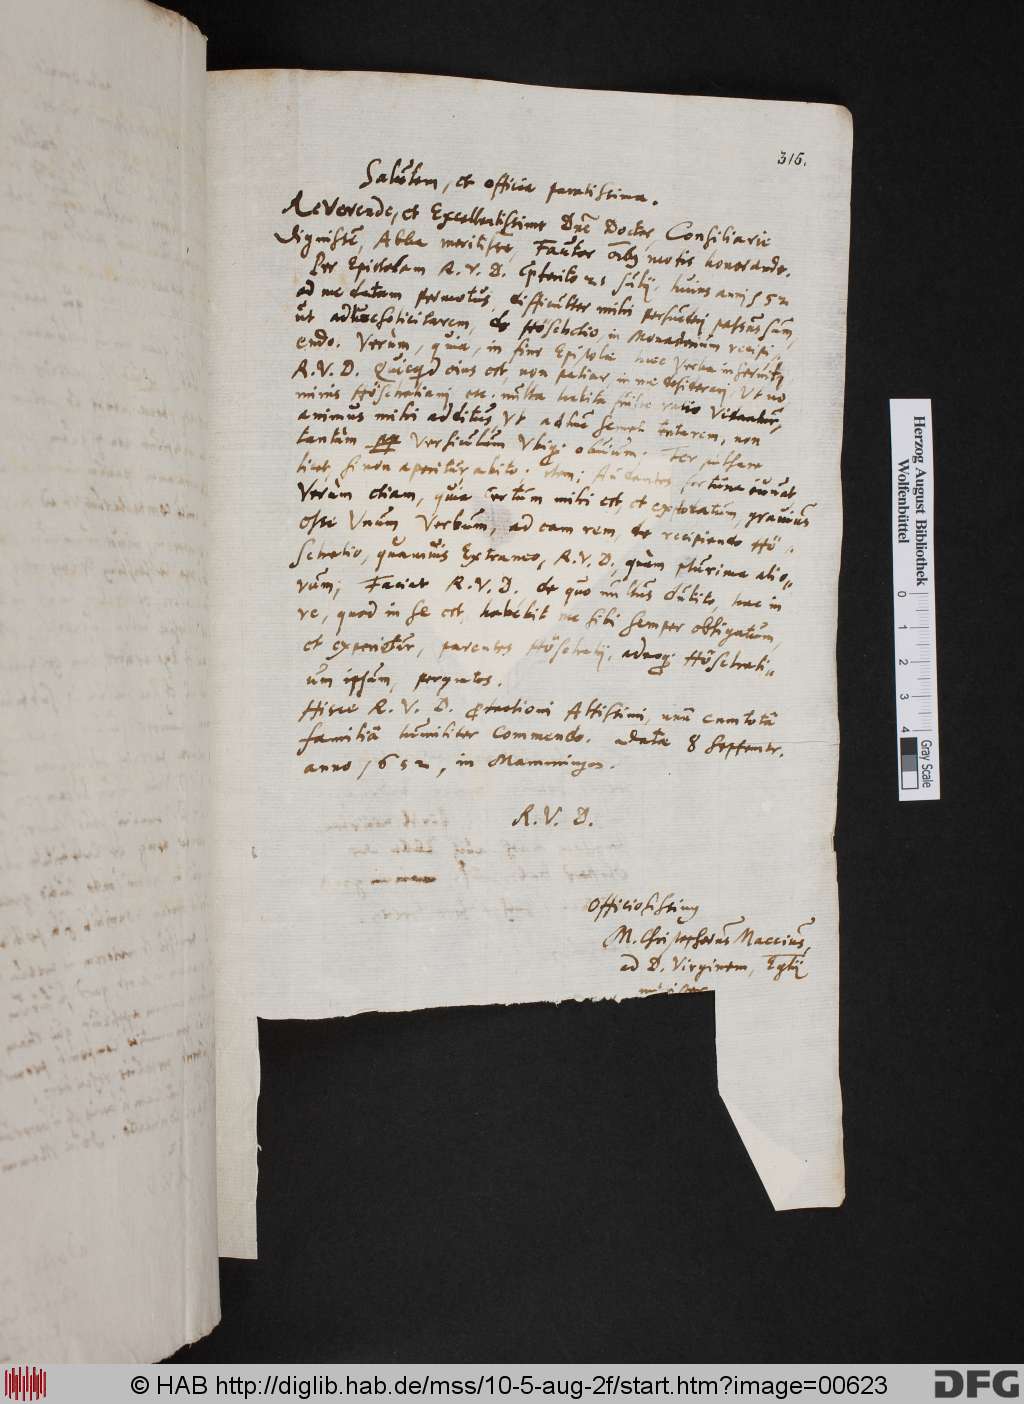 315.
Salutem, et officia paratissima.
Reverende, et Excellentissime Dne Doctor, Consiliarie
dignissime, Abba meritisse, Fautor omnibus modis honorande.
Per Epistolam R. V. D. 25 Julij, huius anni 52
ad me datam permotus, difficulter mihi persuaderi passus sum,
ut adhuc soliciterem, de Höscheltio, in Monasterium recipi„
endo. Verùm, quia, in fine Epistolæ haec verba inseruit,
R. V. D. Quicqd eius est non patiar, in me desiderari, Ut no
minis Höscheltiani etc. multa habita
animus mihi additus, Vt adhuc semel tentarem, non
tantùm versiculum Vbiq; obvium. Ter pulsare
licet, si non aperitur abito; item; Audentes fortuna iuvat
Verùm etiam, quia certum mihi est, et exploratum, gravius
esse Vnum Verbum, ad eam rem, de recipiendo Hö„
scheltio, quamvis Extraneo, R. V. D., quàm plurima alio„
rum; Faciat R. V. D. de quo nullus dubito, hac in
re, quod in se est, habebit me sibi semper obligatum,
et experietur, parentes Höscheltij, adeoq; Höschelti„
um ipsum, pergratos.
Hisce R. V. D. protectioni Altissimi, unà cum totâ
familiâ humiliter commendo. Data 8 Septembr.
anno 1652, in Mammingen.
R. V. D.
Officiosissimus
M. Christopherus Maccius,
ad D. Virginem, Eccliæ
minister
Herzog August Bibliothek
Wolfenbüttel
0 1 2 3 4
Gray Scale
© HAB http://diglib.hab.de/mss/10-5-aug-2f/start.htm?image=00623
DFG